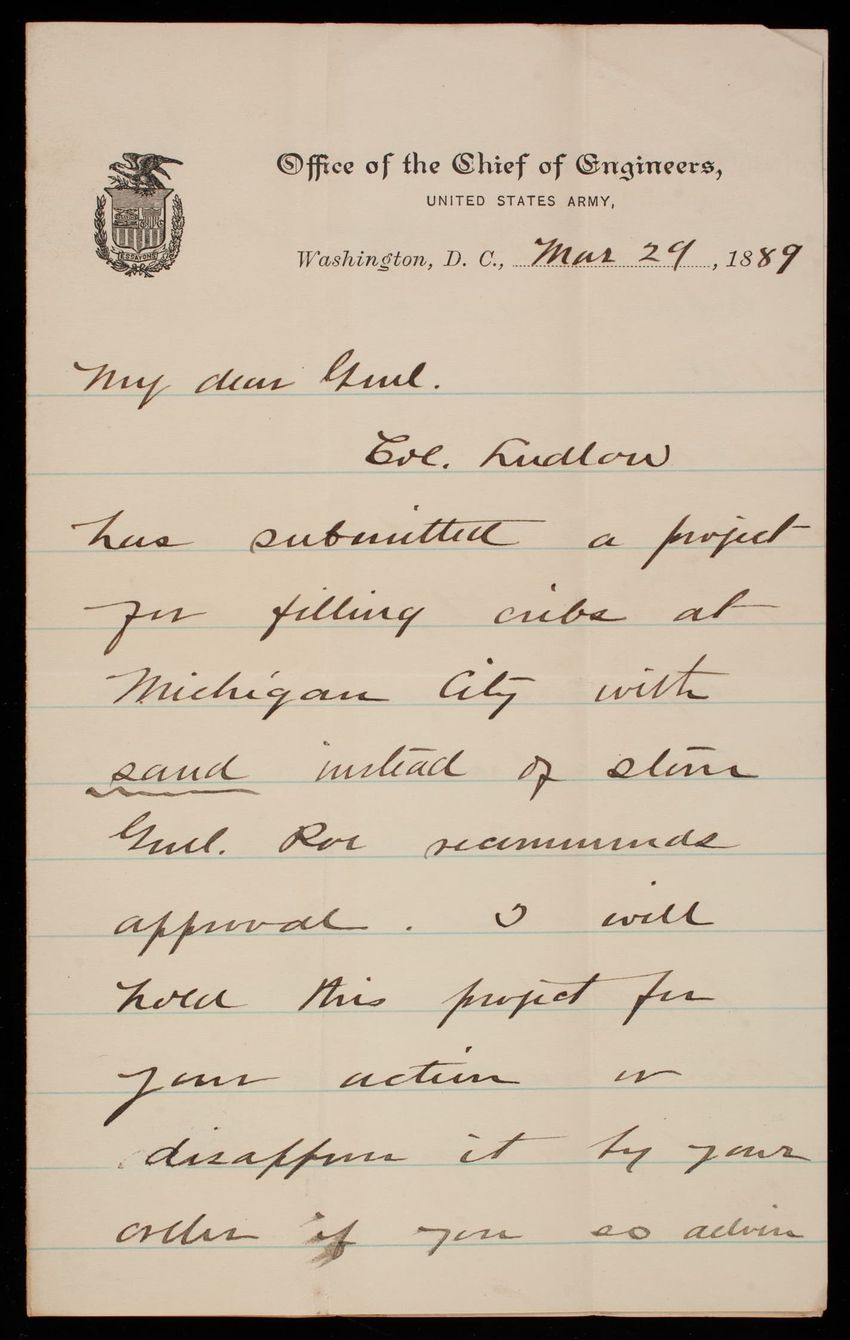 ESSAYONS
Office of the Chief of Engineers,
UNITED STATES ARMY,
Washington, D. C., Mar 29, 1889
My dear Genl.
Col. Ludlow
has submitted a project
for filling cribs at
Michigan City with
sand instead of stone
Genl. Poe recommends
approval. I will
hold this project for
your action or
disapprove it by your
order if you so advise